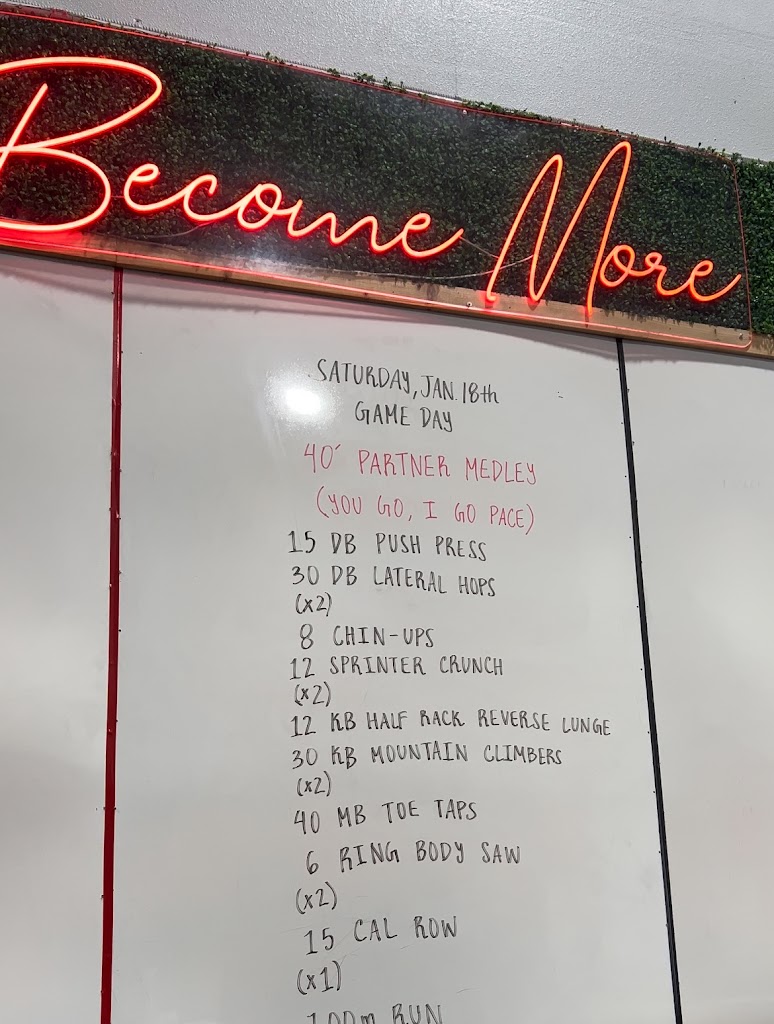 Become More
SATURDAY, JAN. 18th
GAME DAY
40' PARTNER MEDLEY
(YOU GO, I GO PACE)
15 DB PUSH PRESS
30 DB LATERAL HOPS
(x2)
8 CHIN-UPS
12 SPRINTER CRUNCH
(x2)
12 KB HALF RACK REVERSE LUNGE
30 KB MOUNTAIN CLIMBERS
(x2)
40 MB TOE TAPS
6 RING BODY SAW
(x2)
15 CAL ROW
(x1)
100m RUN